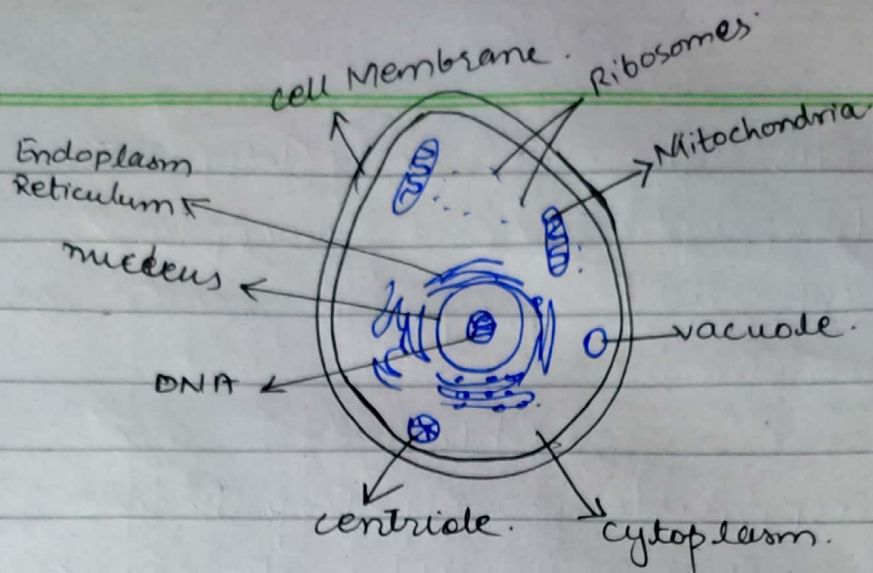 Cell Membrane.
Ribosomes
Mitochondria
Endoplasm
Reticulum
nucleus
vacuole.
DNA
centriole.
cytoplasm.